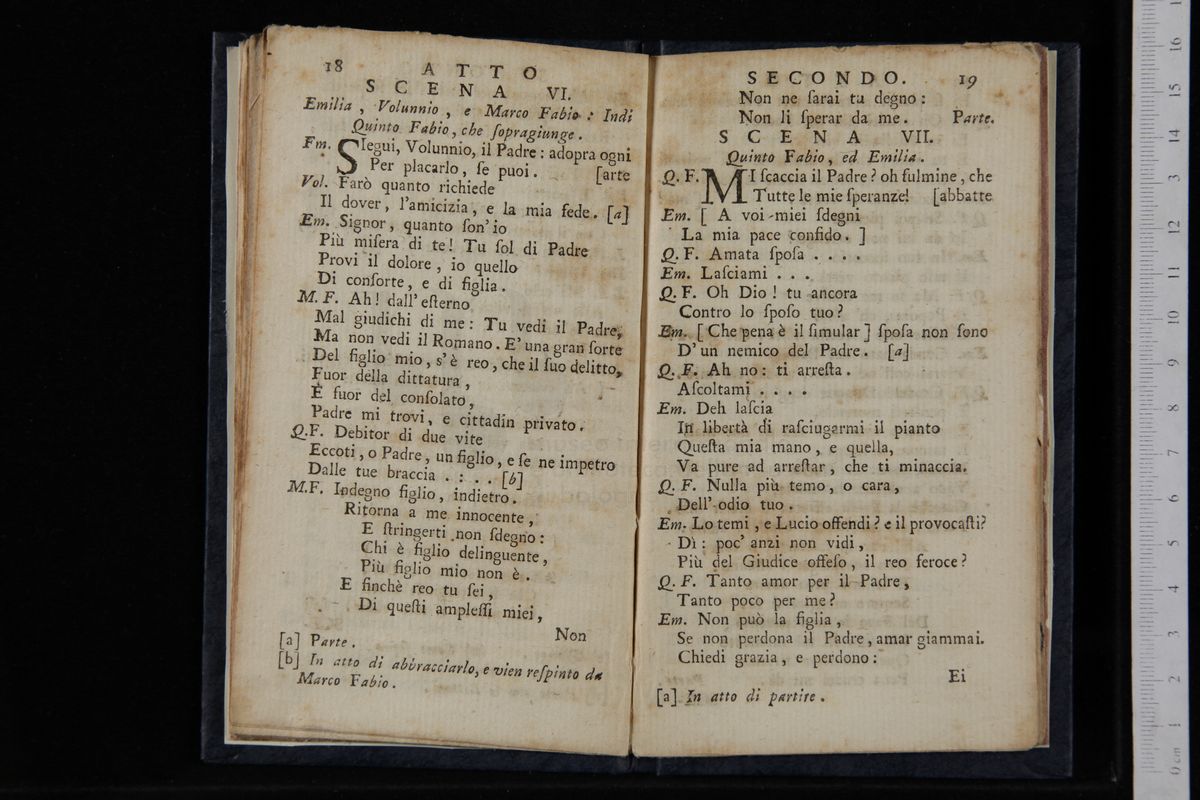 18 ATTO
SCENA VI.
Emilia, Volunnio, e Marco Fabio: Indi
Quinto Fabio, che ſopragiunge.
Em. SIegui, Volunnio, il Padre: adopra ogni
Per placarlo, ſe puoi. [arte
Vol. Farò quanto richiede
Il dover, l'amicizia, e la mia fede. [a]
Em. Signor, quanto ſon' io
Più miſera di te! Tu ſol di Padre
Provi il dolore, io quello
Di conſorte, e di figlia.
M. F. Ah! dall' eſterno
Mal giudichi di me: Tu vedi il Padre,
Ma non vedi il Romano. E' una gran ſorte
Del figlio mio, s' è reo, che il ſuo delitto,
Fuor della dittatura,
E fuor del conſolato,
Padre mi trovi, e cittadin privato.
Q.F. Debitor di due vite
Eccoti, o Padre, un figlio, e ſe ne impetro
Dalle tue braccia . : . . [b]
M.F. Indegno figlio, indietro.
Ritorna a me innocente,
E ſtringerti non ſdegno:
Chi è figlio delinguente,
Più figlio mio non è.
E finchè reo tu ſei,
Di queſti ampleſſi miei,
Non
[a] Parte.
[b] In atto di abbracciarlo, e vien reſpinto da
Marco Fabio.
SECONDO. 19
Non ne ſarai tu degno:
Non li ſperar da me. Parte.
SCENA VII.
Quinto Fabio, ed Emilia.
Q. F. MI ſcaccia il Padre? oh fulmine, che
Tutte le mie ſperanze! [abbatte
Em. [ A voi miei ſdegni
La mia pace confido. ]
Q. F. Amata ſpoſa . . . .
Em. Laſciami . . .
Q. F. Oh Dio! tu ancora
Contro lo ſpoſo tuo?
Em. [ Che pena è il ſimular ] ſpoſa non ſono
D' un nemico del Padre. [a]
Q. F. Ah no: ti arreſta.
Aſcoltami . . . .
Em. Deh laſcia
In libertà di raſciugarmi il pianto
Queſta mia mano, e quella,
Va pure ad arreſtar, che ti minaccia.
Q. F. Nulla più temo, o cara,
Dell' odio tuo.
Em. Lo temi, e Lucio offendi? e il provocaſti?
Dì: poc' anzi non vidi,
Più del Giudice offeſo, il reo feroce?
Q. F. Tanto amor per il Padre,
Tanto poco per me?
Em. Non può la figlia,
Se non perdona il Padre, amar giammai.
Chiedi grazia, e perdono:
Ei
[a] In atto di partire.
0 cm 1 2 3 4 5 6 7 8 9 10 11 12 13 14 15 16